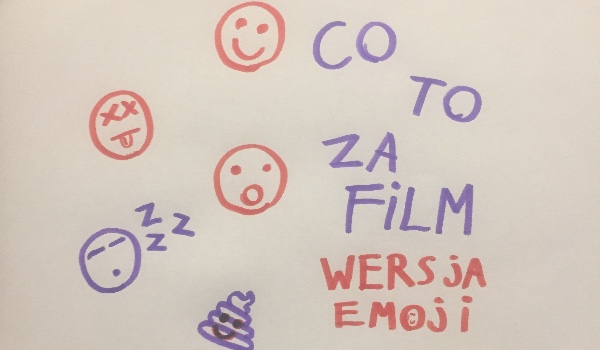 CO
TO
ZA
FiLM
WERSjA
EMOji
z z z